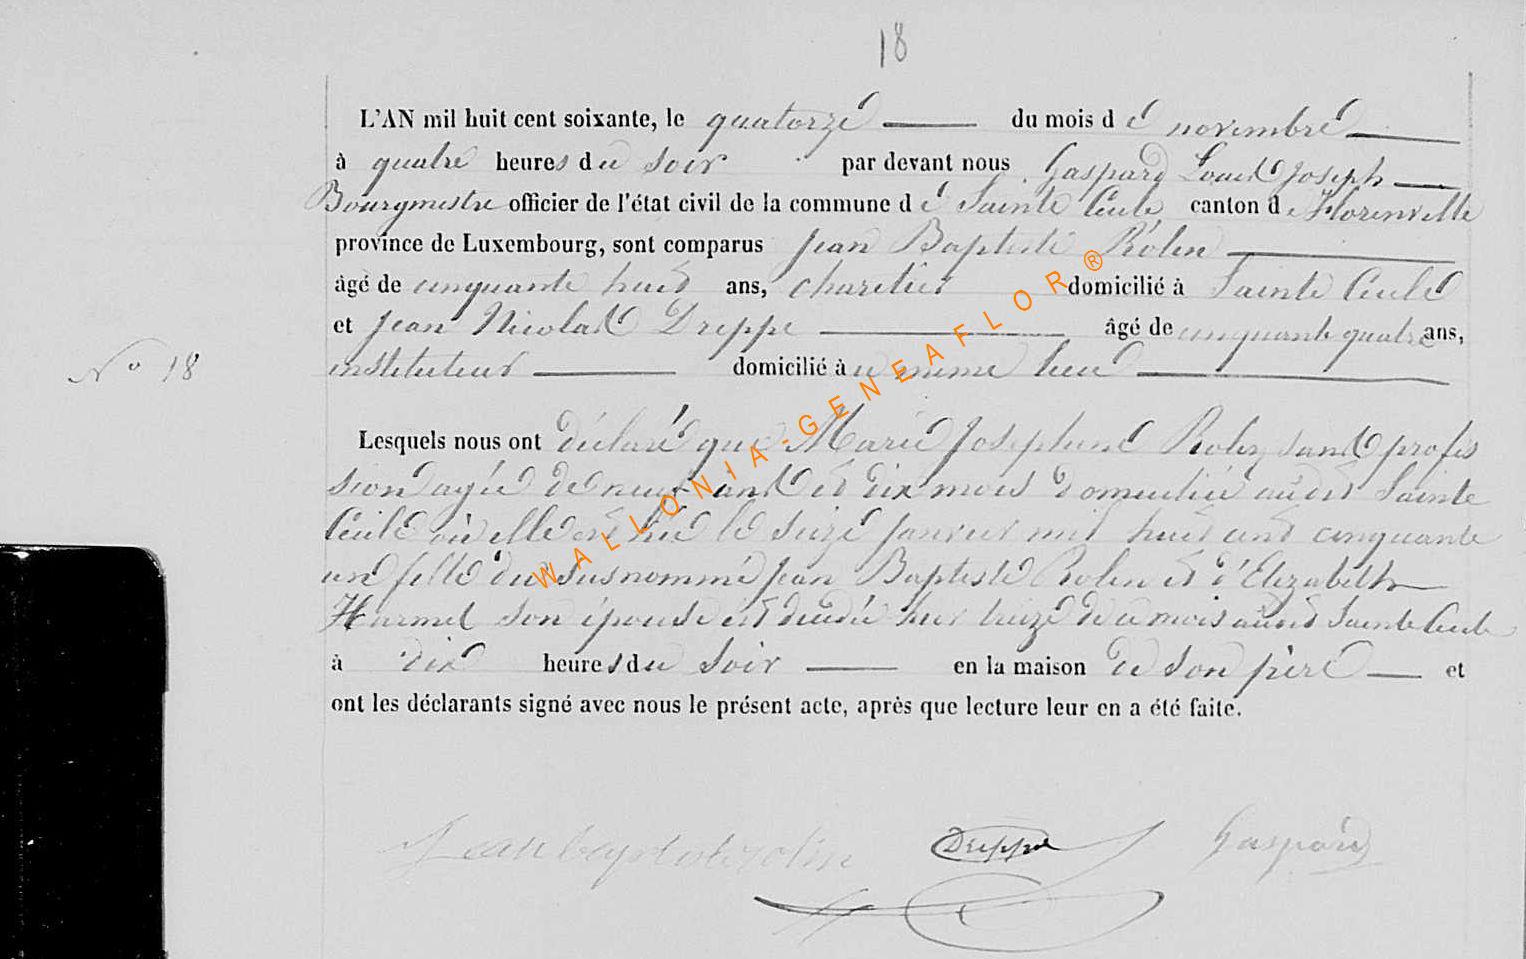 18
L'AN mil huit cent soixante, le quatorze du mois de novembre
à quatre heures du soir par devant nous Gaspard Louis Joseph
Bourgmestre officier de l'état civil de la commune de Sainte Cécile canton de Florenville
province de Luxembourg, sont comparus Jean Baptiste Rolin
âgé de cinquante huit ans, charetier domicilié à Sainte Cecile
et Jean Nicolas Dreppe âgé de cinquante quatre ans,
N° 18
instituteur domicilié à ce même lieu
Lesquels nous ont déclaré que Marie Josephine Rolin, sans profes
sion agée de neuf ans et dix mois domiciliée audit Sainte
Cecile où elle est née le seize janvier mil huit cent cinquante
un fille du susnommé Jean Baptiste Rolin et d'Elizabeth
Harmel son épouse est décédée hier treize de ce mois audit Sainte Cecile
à dix heures du soir en la maison de son père et
ont les déclarants signé avec nous le présent acte, après que lecture leur en a été faite.
Jean baptiste rolin Dreppe Gaspard
WALLONIA-GENEAFLOR®